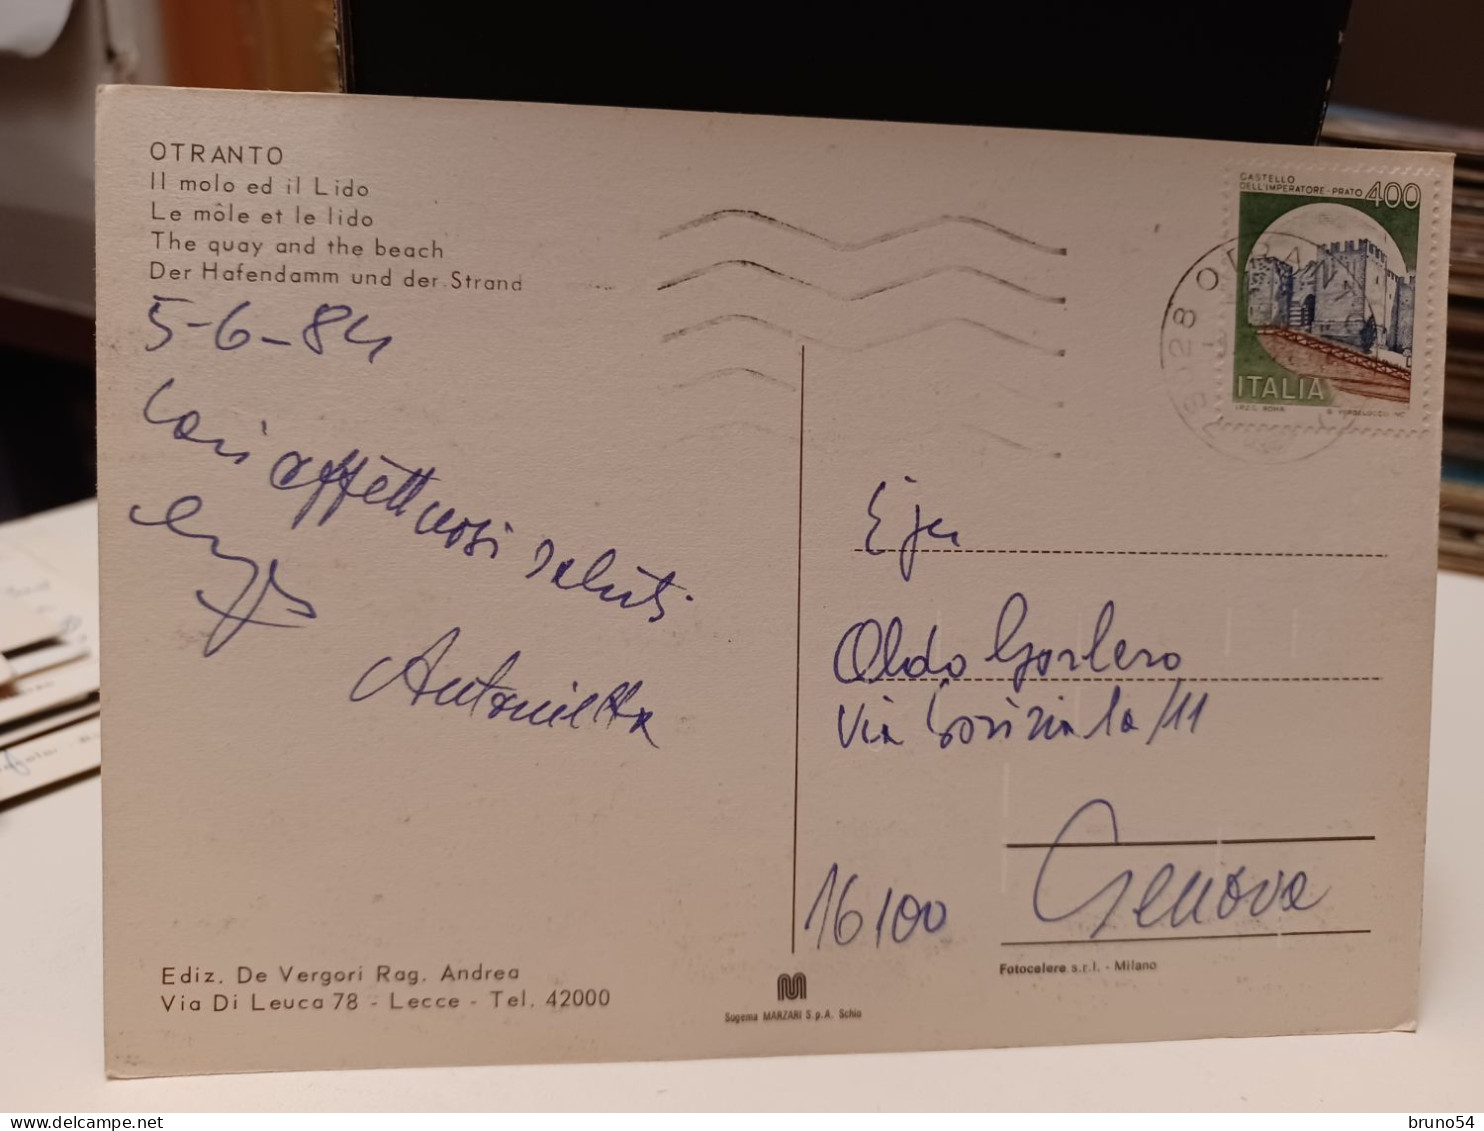 OTRANTO
Il molo ed il Lido
Le môle et le lido
The quay and the beach
Der Hafendamm und der Strand
5-6-84
Cari affettuosi saluti
Antonietta
CASTELLO
DELL'IMPERATORE-PRATO 400
ITALIA
I.P.Z.S. ROMA
73028 OTRANTO
Aldo Gorlero
Via Gorizia 1a/11
16100 Genova
Ediz. De Vergori Rag. Andrea
Via Di Leuca 78 - Lecce - Tel. 42000
Sogema MARZARI S.p.A. Schio
Fotocelere s.r.l. - Milano
delcampe.net
bruno54